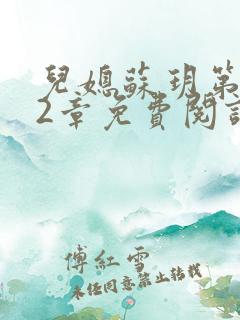 兒媳蘇玥第
2章免費閱讀
傅紅雪
未经同意禁止转载